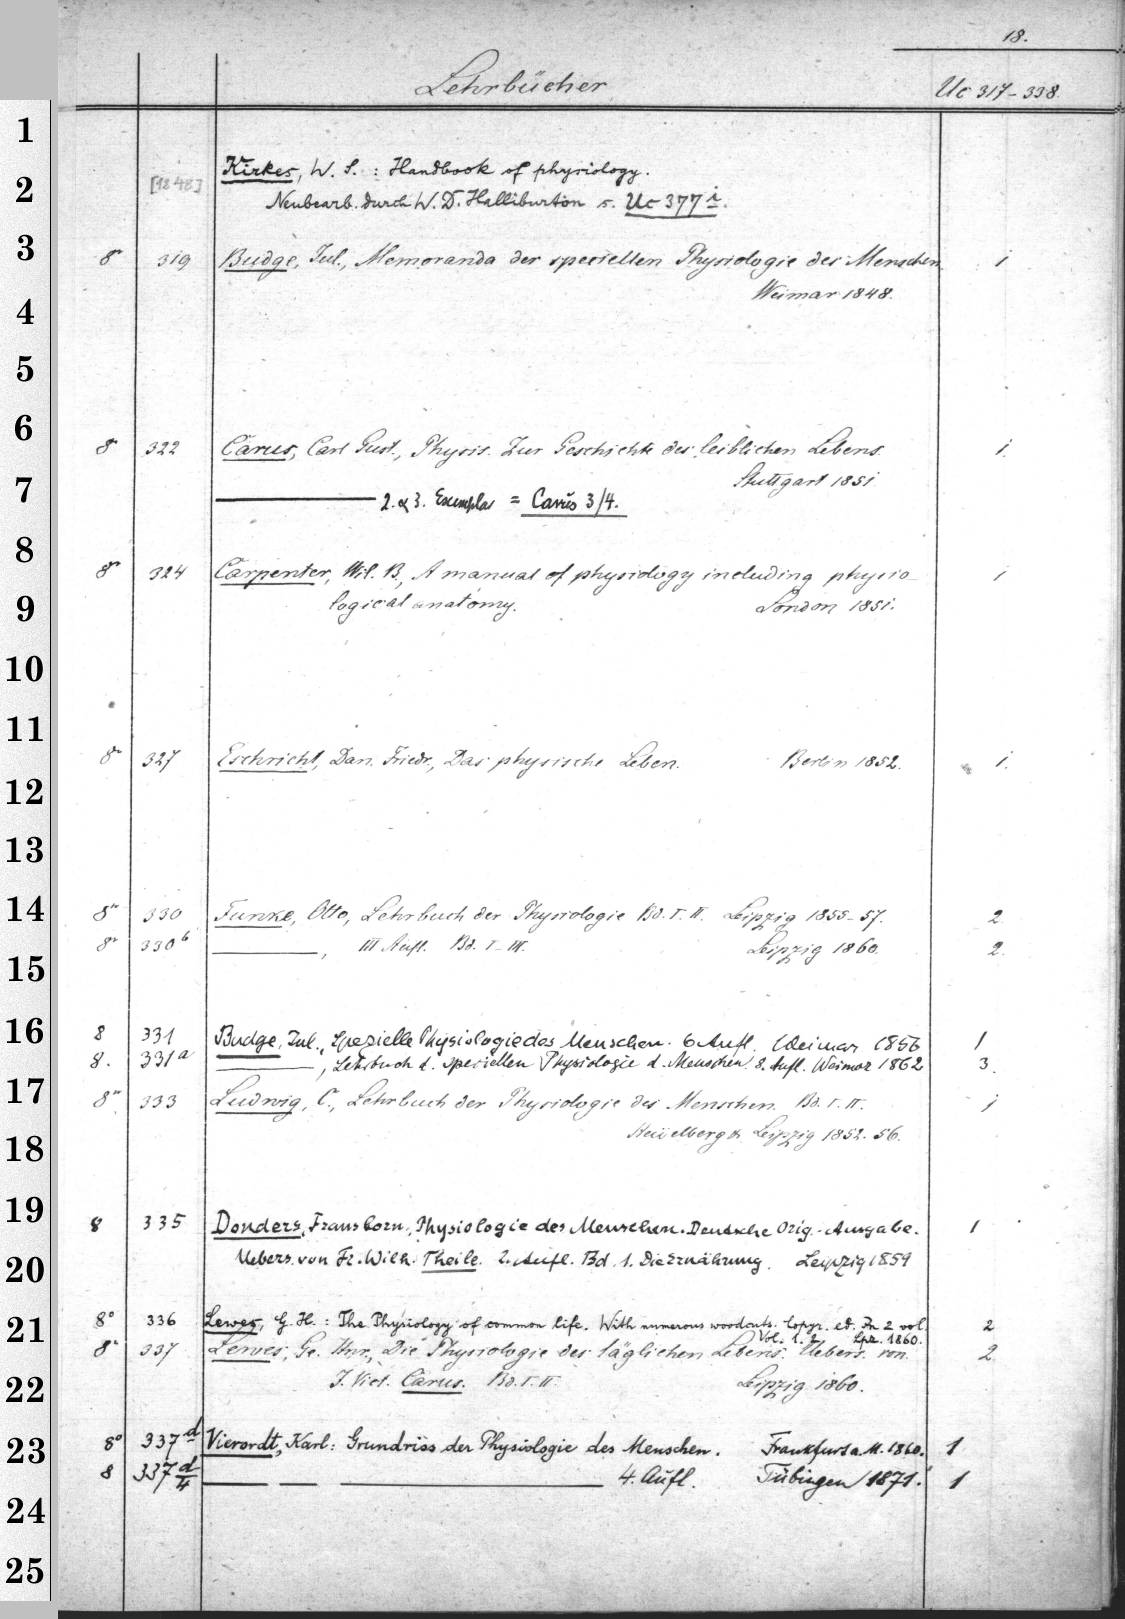 18.
Lehrbücher Uc 317-338.
1
Kirkes, W. S. : Handbook of physiology.
2 [1848] Neubearb. durch W. D. Halliburton s. Uc 377 i.
3 8° 319 Budge, Jul., Memoranda der speciellen Physiologie des Menschen 1
4 Weimar 1848.
5
6 8° 322 Carus, Carl Gust., Physis. Zur Geschichte des leiblichen Lebens. 1.
7 Stuttgart 1851
2. & 3. Exemplar = Carus 3/4.
8 8° 324 Carpenter, Wil. B., A manual of physiology including physio- 1
9 logical anatomy. London 1851.
10
11 8° 327 Eschricht, Dan. Friedr., Das physische Leben. Berlin 1852. 1.
12
13
14 8° 330 Funke, Otto, Lehrbuch der Physiologie Bd. I. II. Leipzig 1855-57. 2
15 8° 330b ———, III Aufl. Bd. I-III. Leipzig 1860. 2.
16 8 331 Budge, Jul., Spezielle Physiologie des Menschen. 6 Aufl. Weimar 1856 1
8. 331a ———, Lehrbuch d. speciellen Physiologie d. Menschen. 8. Aufl. Weimar 1862 3.
17 8° 333 Ludwig, C., Lehrbuch der Physiologie des Menschen. Bd. I. II. 1
18 Heidelberg & Leipzig 1852-56.
19 8 335 Donders, Frans Corn., Physiologie des Menschen. Deutsche Orig.-Ausgabe. 1
20 Uebers. von Fr. Wilh. Theile. 2. Aufl. Bd. 1. Die Ernährung. Leipzig 1859
21 8° 336 Lewes, G. H. : The Physiology of common life. With numerous woodcuts. Copyr. ed. In 2 vol. 2
Vol. 1. 2. Lpz. 1860.
8° 337 Lewes, Ge. Hnr., Die Physiologie des täglichen Lebens. Uebers. von 2
22 J. Vict. Carus. Bd. I. II. Leipzig 1860.
23 8° 337d Vierordt, Karl: Grundriss der Physiologie des Menschen. Frankfurt a. M. 1860. 1
8 337 d/4 —— —— ——— 4. Aufl. Tübingen 1871. 1
24
25